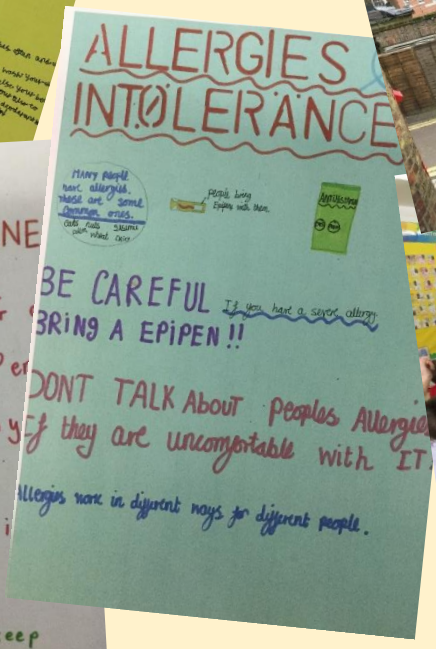 ALLERGIES
INTOLERANCE
MANY people
have allergies.
these are some
common ones.
cats nuts sesame
people bring
Epipens with them.
BE CAREFUL If you have a severe allergy
BRING A EPIPEN !!
DONT TALK About Peoples Allergie
If they are uncomfortable with IT
Allergies work in different ways for different people.
NE
eep